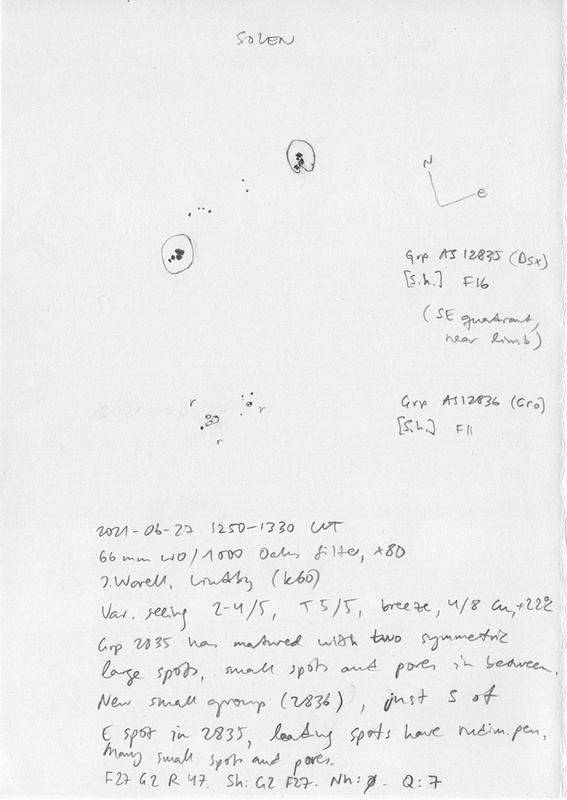 SOLEN
N
E
Grp AS 12835 (Dsx)
[S.h.] F16
(SE quadrant,
near limb)
r
r
r
Grp AS 12836 (Cro)
[S.h.] F11
2021-06-27 1250-1330 UT
66 mm WO/1000 Oaks filter, x80
J.Warell, Lindby (k60)
Var. seeing 2-4/5, T 5/5, breeze, 4/8 Cu, +22°
Grp 2835 has matured with two symmetric
large spots, small spots and pores in between.
New small group (2836), just S of
E spot in 2835, leading spots have rudim. pen,
many small spots and pores.
F27 G2 R 47. Sh: G2 F27. Nh: 0. Q: 7